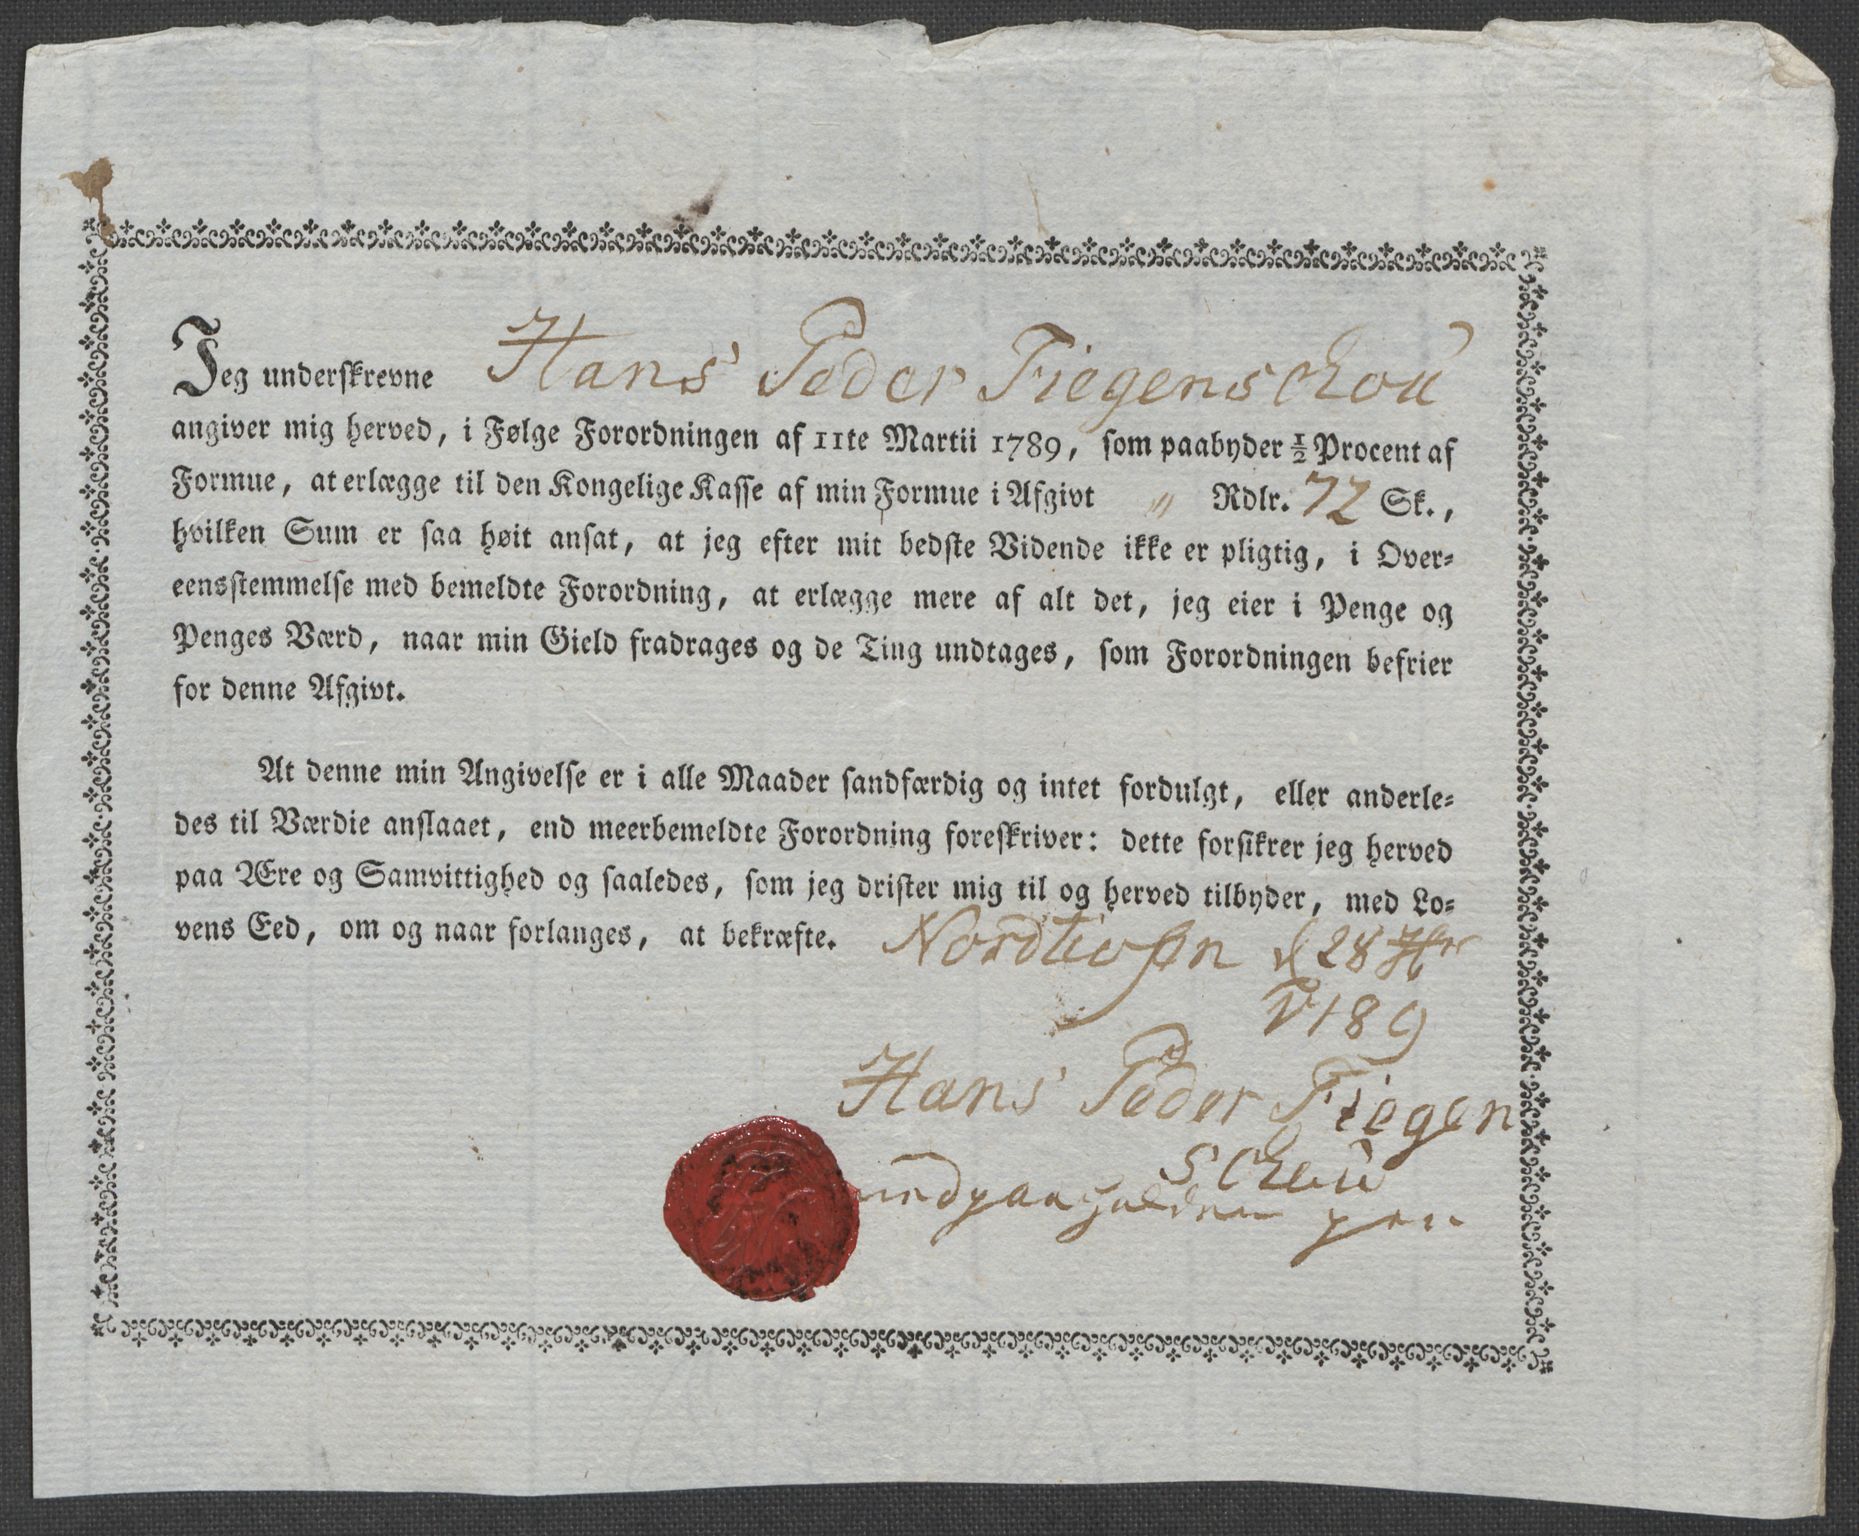 Jeg underskrevne Hans Peder Fiegenschou
angiver mig herved, i Følge Forordningen af 11te Martii 1789, som paabyder ½ Procent af
Formue, at erlægge til den Kongelige Kasse af min Formue i Afgivt " Rdlr. 72 Sk.,
hvilken Sum er saa høit ansat, at jeg efter mit bedste Vidende ikke er pligtig, i Over-
eensstemmelse med bemeldte Forordning, at erlægge mere af alt det, jeg eier i Penge og
Penges Værd, naar min Gield fradrages og de Ting undtages, som Forordningen befrier
for denne Afgivt.
At denne min Angivelse er i alle Maader sandfærdig og intet fordulgt, eller anderle-
des til Værdie anslaaet, end meerbemeldte Forordning foreskriver: dette forsikrer jeg herved
paa Ære og Samvittighed og saaledes, som jeg drister mig til og herved tilbyder, med Lo-
vens Eed, om og naar forlanges, at bekræfte. d 28
Hans Peder Fiegen
schou